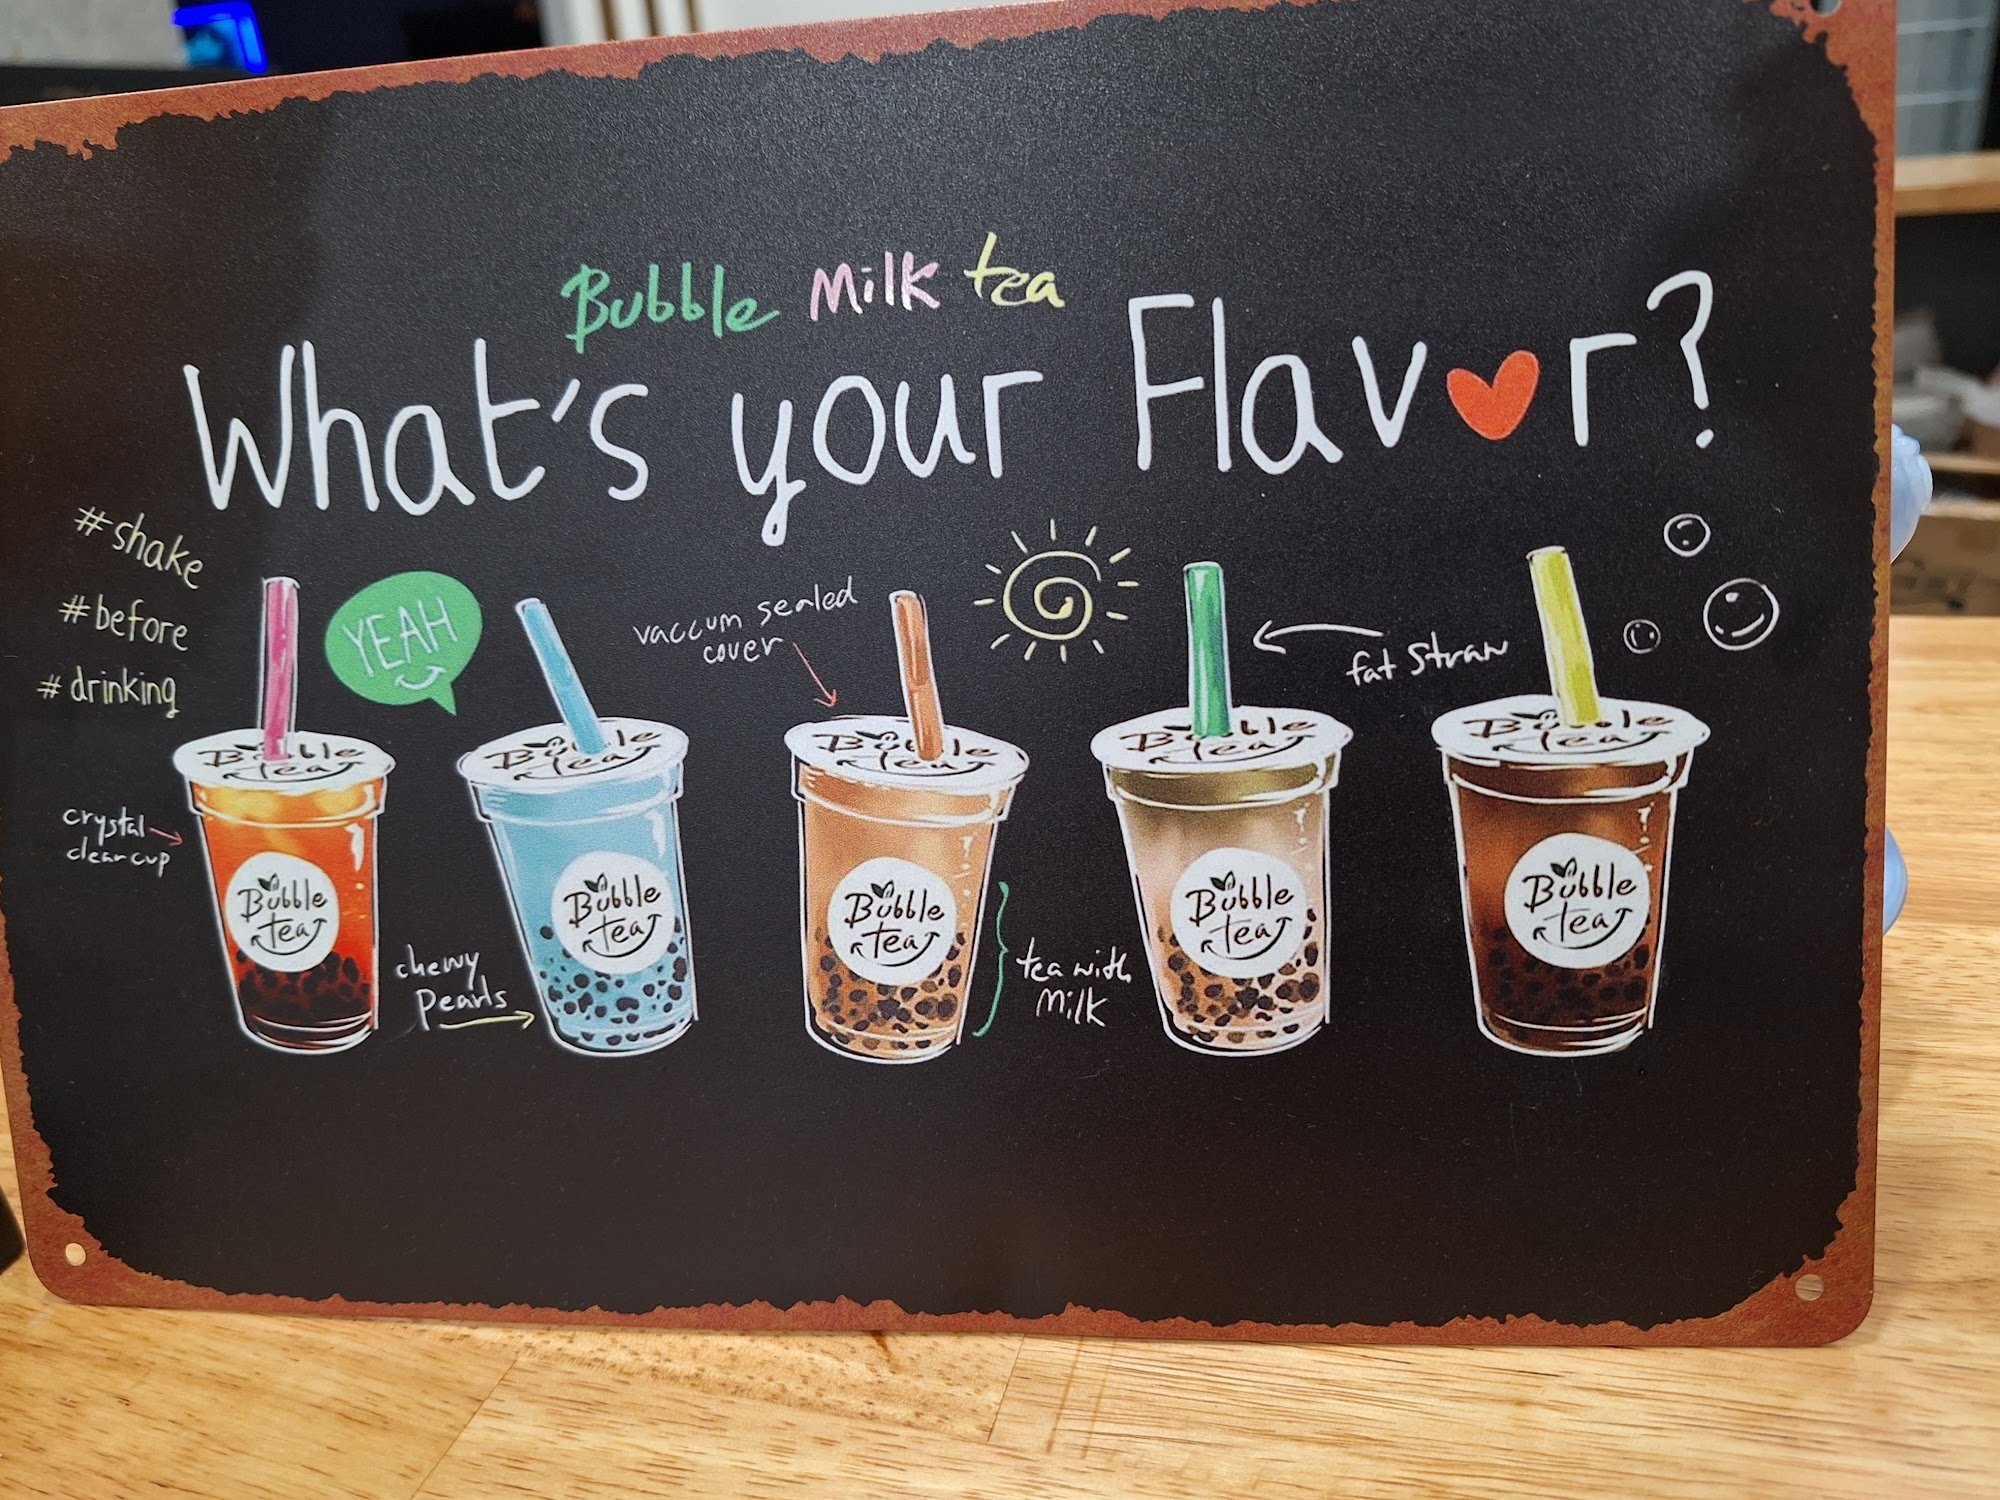 Bubble Milk tea
What's your Flav♥r?
#shake
#before
#drinking
YEAH
vaccum sealed
cover
fat straw
Bubble
tea
Bubble
tea
Bubble
tea
Bubble
tea
Bubble
tea
crystal
clear cup
Bubble
tea
Bubble
tea
Bubble
tea
Bubble
tea
Bubble
tea
chewy
pearls
tea with
milk